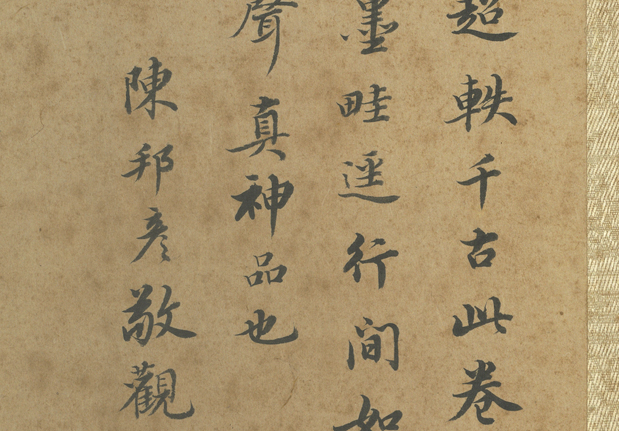 超軼千古此卷
墨畦逕行間如
聲真神品也
陳邦彦敬觀